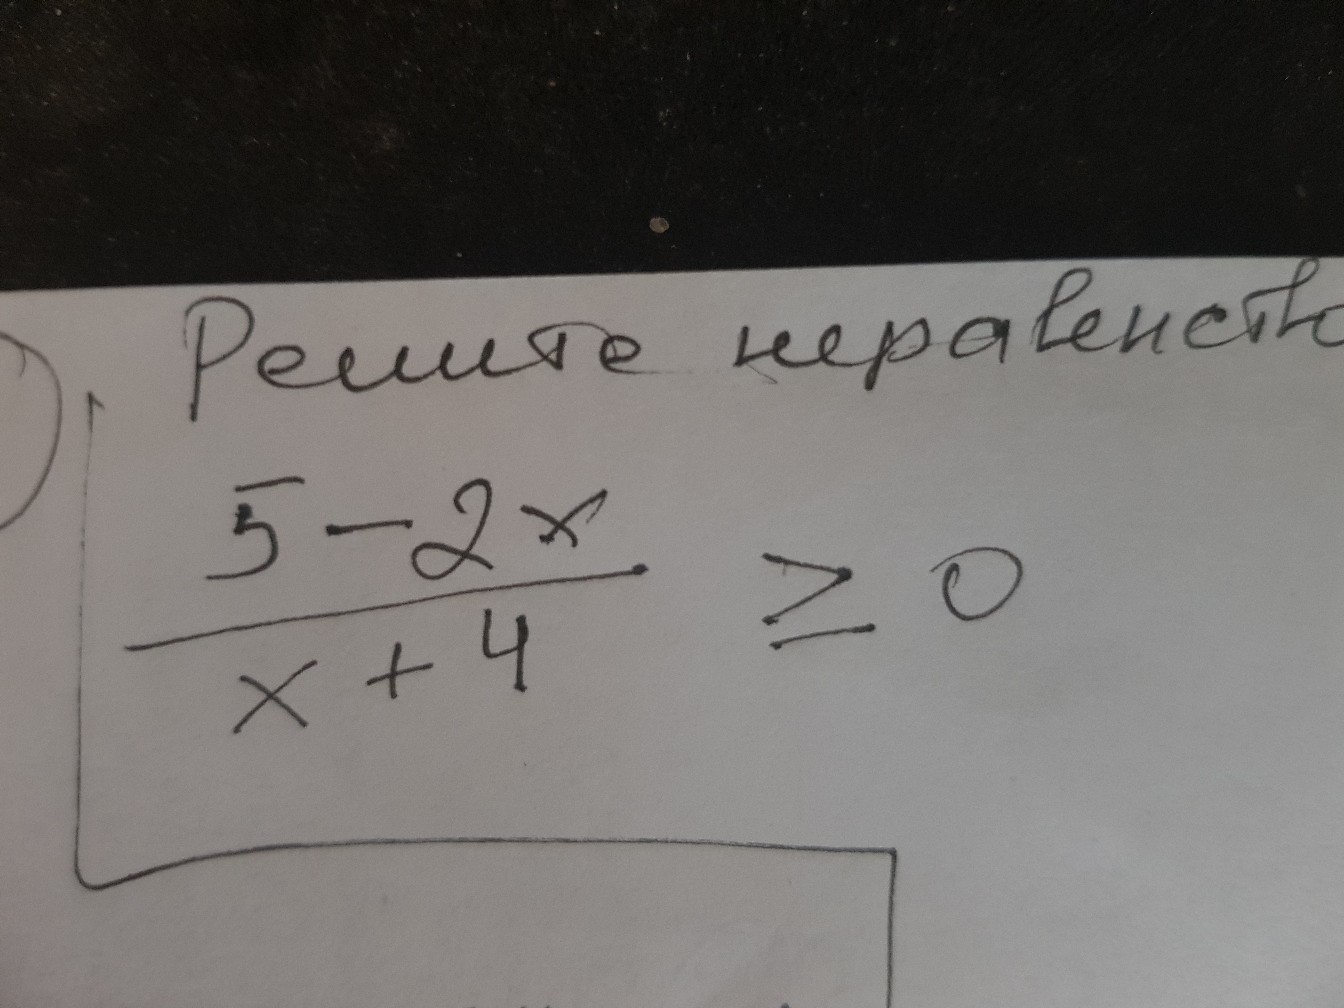 Решите неравенство
5 - 2x
x + 4
≥ 0